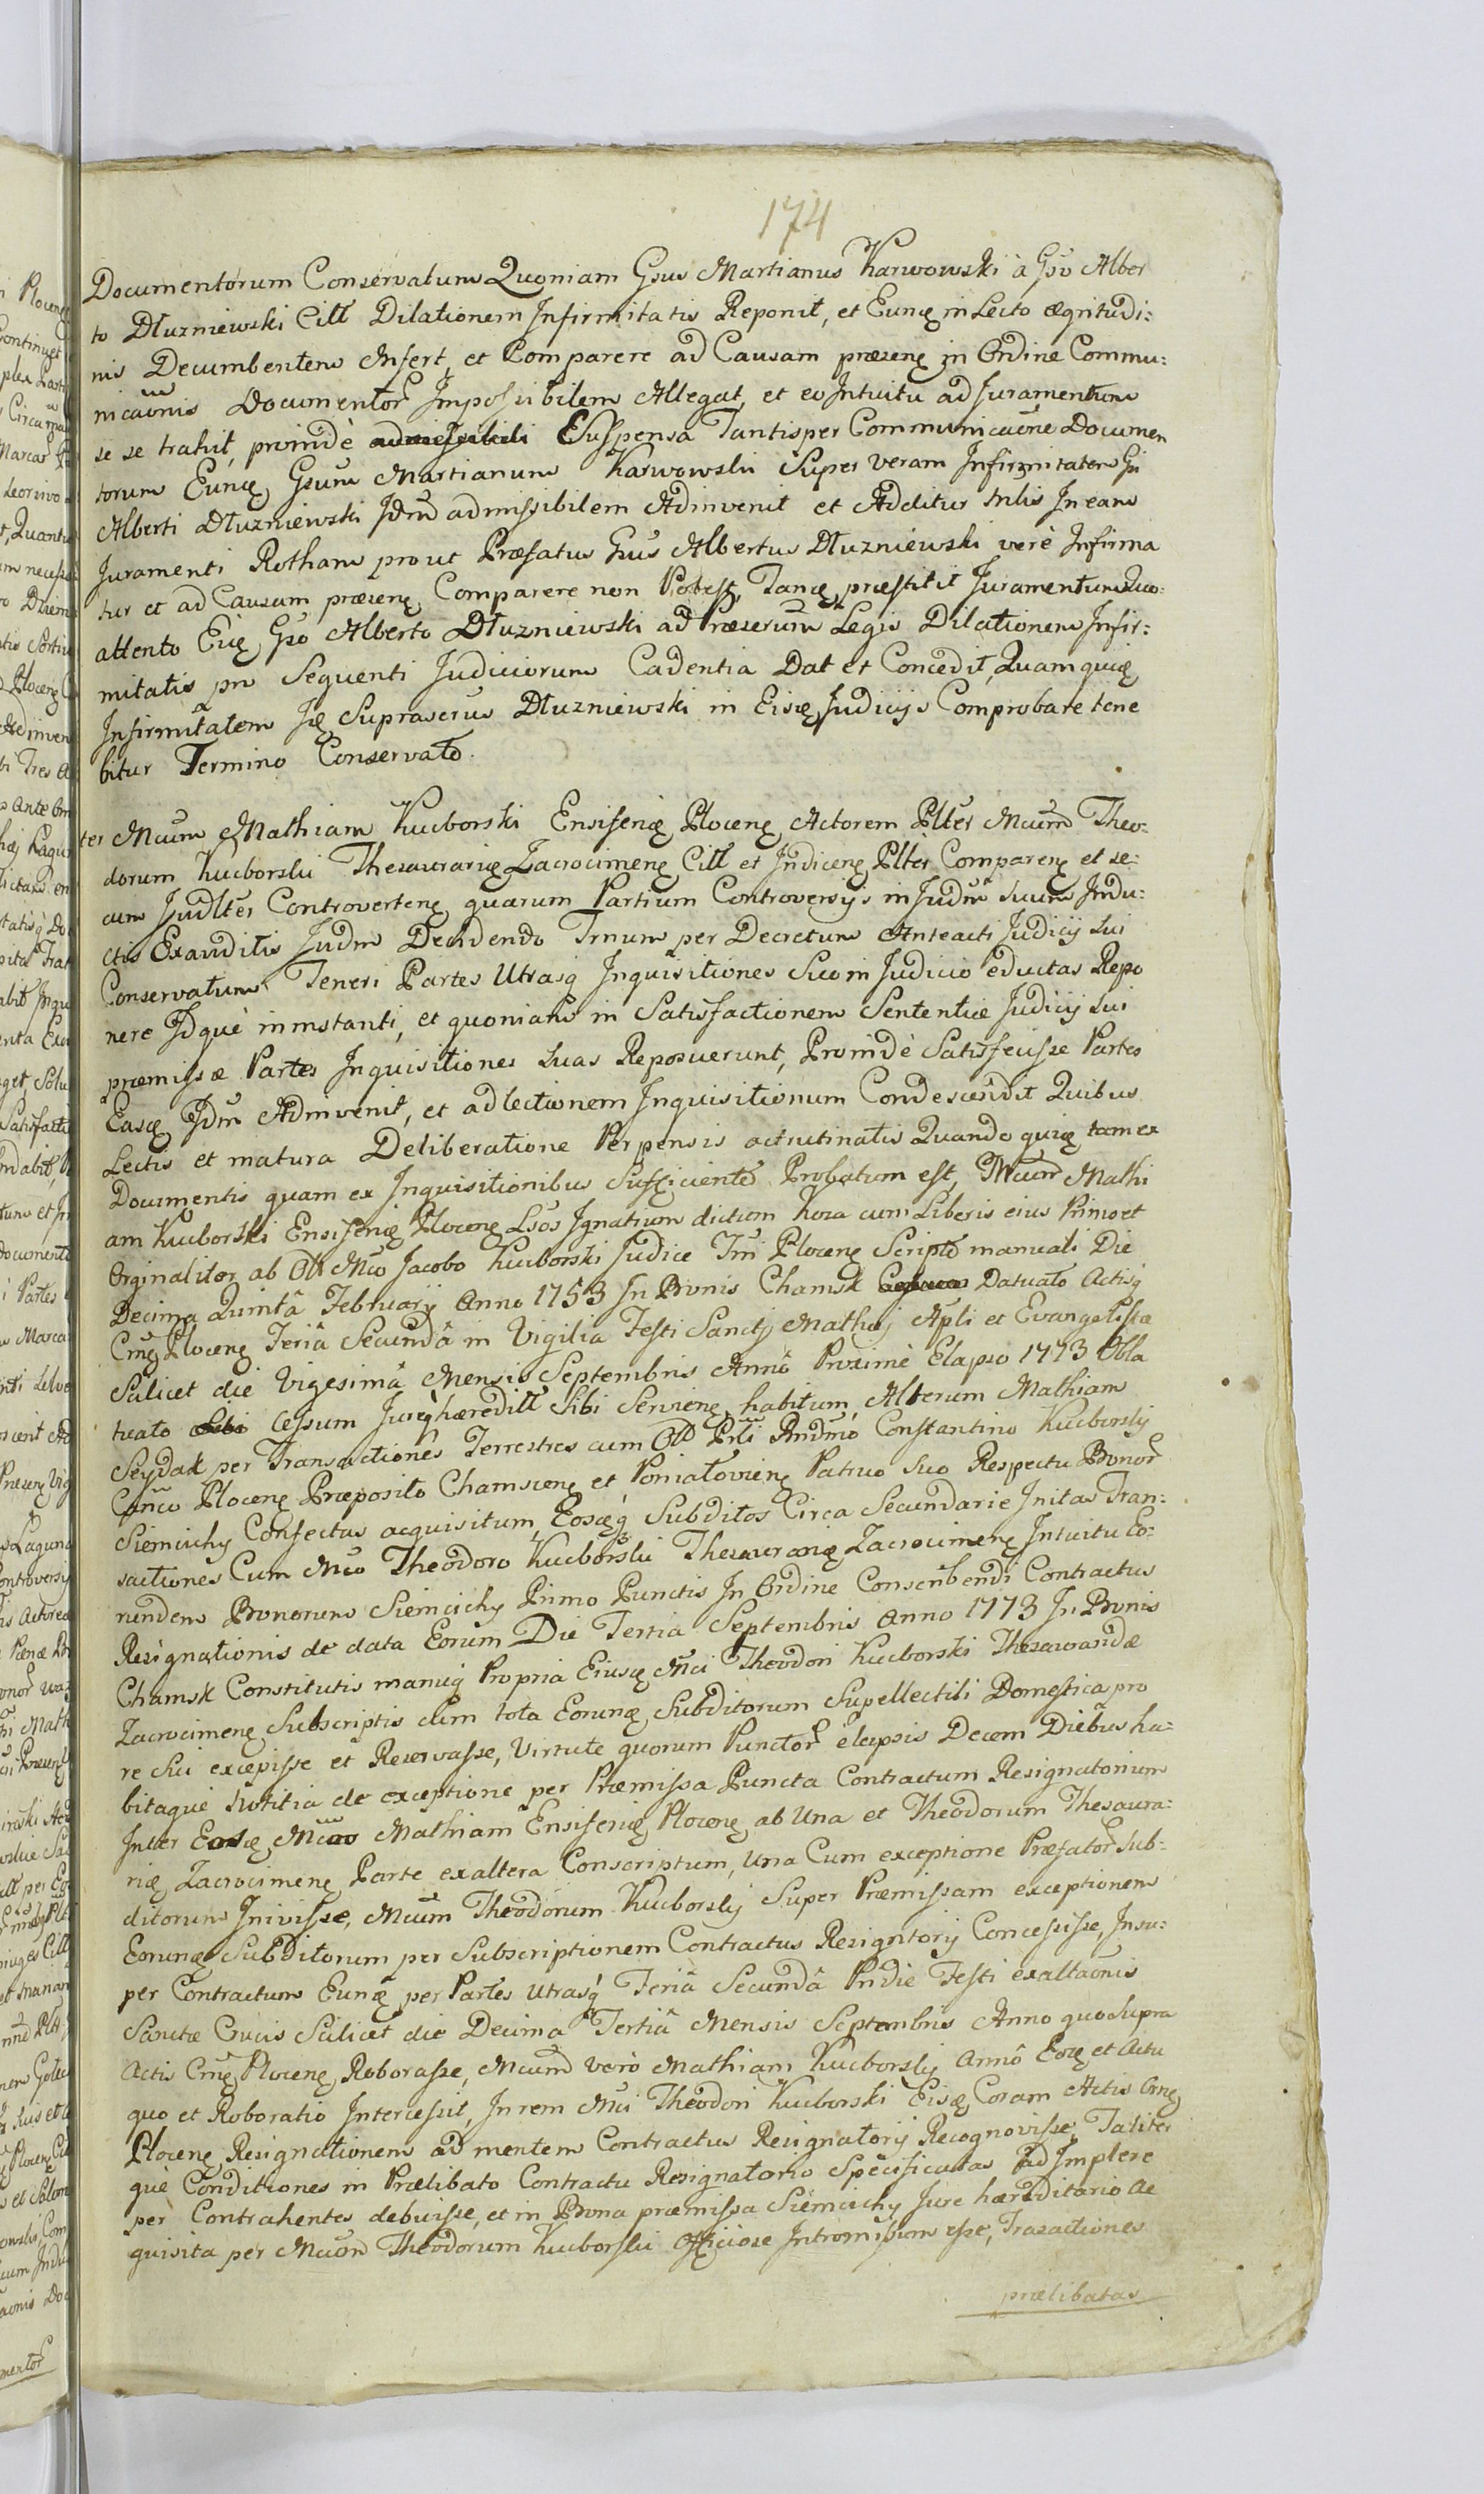 174
Documentorum Conservatum Quoniam Gsus Martianus Karwowski à Gso Alber
to Dłuzniewski Citt Dilationem Infirmitatis Reponit, et Eunq in Lecto ægritudi:
nis Decumbentem Asfert, et Comparere ad Causam præsenq in Ordine Commu:
nicaõnis Documentor Impossibilem Allegat, et eo Intuitu ad Juramentum
se se trahit, proindè Suspensa Tantisper Communicaõne Documen
torum Eunq Gsum Martianum Karwowski Super Veram Infirmitatem Gsi
Alberti Dłuzniewski Jdm admissibilem Adinvenit et Additur Mlis In eam
Juramenti Rotham prout Præfatus Gsus Albertus Dłuzniewski verè Infirma
tur et ad Causam præsenq Comparere non Potest, Tanq præstitit Juramentum Quo:
attento Eiq Gso Alberto Dłuzniewski ad Præscrum Legis Dilationem Infir:
mitatis pro Sequenti Judiciorum Cadentia Dat et Concedit, Quam quiq
Infirmitatem Jq Suprascrus Dłuzniewski in Eisq Judicijs Comprobare tene
bitur Termino Conservato.
ter Mcum Mathiam Kucborski Ensiferiq Plocenq Actorem Plter Mcum Theo:
dorum Kucborski Thesaurariq Zacrocimenq Citt et Indicenq Plter Comparenq et se:
cum Judlter Controvertenq quarum Partium Controversijs in Judm suum Indu:
ctis Exauditis Judm Decidendo Trnum per Decretum Anteacti Judicij Sui
Conservatum Teneri Partes Utrasq Inquisitiones Suo in Judicio eductas Repo
nere Jdquè in instanti, et quoniam in Satisfactionem Sententiæ Judicij Sui
præmissæ Partes Inquisitiones suas Reposuerunt, Proindè Satisfecisse Partes
Easq Jdm Adinvenit, et ad lectionem Inquisitionum Condescendit Quibus
Lectis et matura Deliberatione Perpensis actrutinatis Quando quiq tam ex
Documentis quam ex Inquisitionibus Sufficienter Probatum est, Mcum Mathi
am Kucborski Ensiferiq Plocenq Lsos Ignatium dictum Koza cum Liberis eius Primo et
Orginaliter ab Olt Mco Jacobo Kucborski Judice Trri Plocenq Scripto manuali Die
Decima Quintâ Februarij Anno 1753 In Bonis Chamsk Datuato Actisq
Crnq Plocenq Feriâ Secundâ in Vigilia Festi Sancti Mathæi Apli et Evangelistæ
Scilicet die Vigesimâ Mensis Septembris Annô Proximè Elapso 1773 Obla
tuato cessum Jureq hæreditt Sibi Servienq habitum, Alterum Mathiam
Seydak per Transactiones Terrestres cum Olt Prli Rndmo Constantino Kucborskij
Cnco Plocenq Præposito Chamscenq et Poniatovienq Patruo Suo Respectu Bonor
Siemichy Confectas acquisitum, Eosqq Subditos Circa Secundarie Initas Tran:
sactiones Cum Mco Theodoro Kucborski Thesaurariq Zacrocimenq Intuitu Eo:
rundem Bonorum Siemichy Primo Punctis In Ordine Conscribendi Contractus
Resignationis de data Eorum Die Tertia Septembris Anno 1773 In Bonis
Chamsk Constitutis manuq Propria Eiusq Mci Theodori Kucborski Thesaurariæ
Zacrocimenq Subscriptis cum tota Eorunq Subditorum Supellectili Domestica pro
re Sui excepisse et Reservasse, Virtute quorum Punctor elapsis Decem Diebus ha:
bitaquè Notitia de exceptione per Præmissa Puncta Contractum Resignatorium
Inter Eosq Mcos Mathiam Ensiferiq Plocenq ab Una et Theodorum Thesaura:
riq Zacrocimenq Parte ex altera Conscriptum, Una Cum exceptione Præfator Sub:
ditorum Inivisse, Mcum Theodorum Kucborskij Super Præmissam exceptionem
Eorunq Subditorum per Subscriptionem Contractus Resigntorij Concessisse, Insu:
per Contractum Eunq per Partes Utrasq Feriâ Secundâ Pridie Festi exaltaonis
Sanctæ Crucis Scilicet die Decima Tertiâ Mensis Septembris Anno quo Supra
Actis Crnq Plocenq Roborasse, Mcum verò Mathiam Kucborskij Annô Eoq et Actu
quo et Roboratio Intercessit, In rem Mci Theodori Kucborski Eisq Coram Actis Crnq
Plocenq Resignationem ad mentem Contractus Resignatorij Recognovisse, Taliter
què Conditiones in Prælibato Contractu Resignatorio Specificatas ad Implere
per Contrahentes debuisse, et in Bona præmissa Siemichy Jure hæreditario Ac
quisita per Mcum Theodorum Kucborski Officiose Intromissum esse, Trasactiones
prælibatas